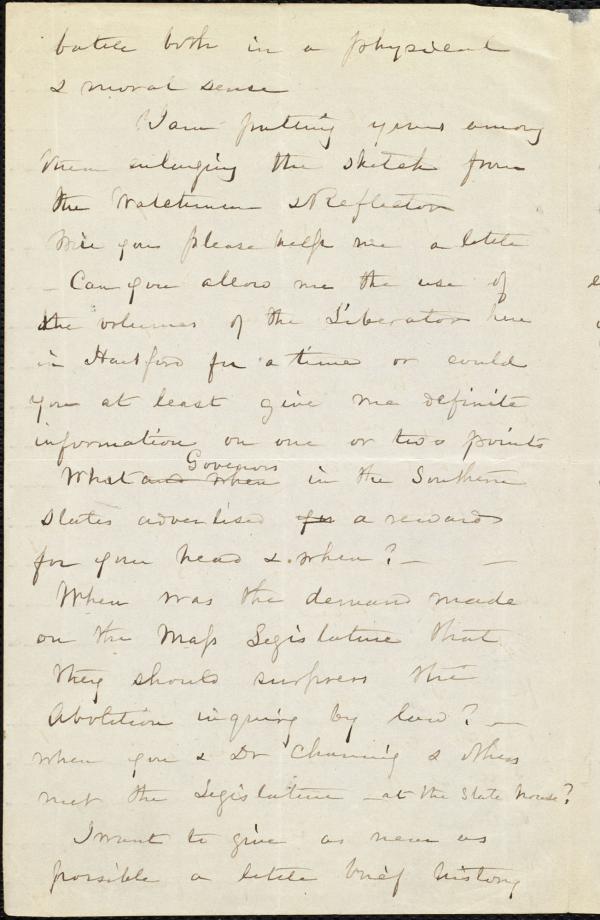 battle both in a physical
& moral sense
I am putting yours among
them enlarging the sketch from
the Watchman & Reflector
Will you please help me a little
- Can you allow me the use of
the volumes of the Liberator here
in Hartford for a time or could
you at least give me definite
information on one or two points
Governors
What and when in the Southern
States advertised for a reward
for your head & when? -
When was the demand made
on the Mass Legislature that
they should suppress the
Abolition inquiry by law? -
when you & Dr Channing & others
met the Legislature - at the State house?
I want to give as near as
possible a little brief history